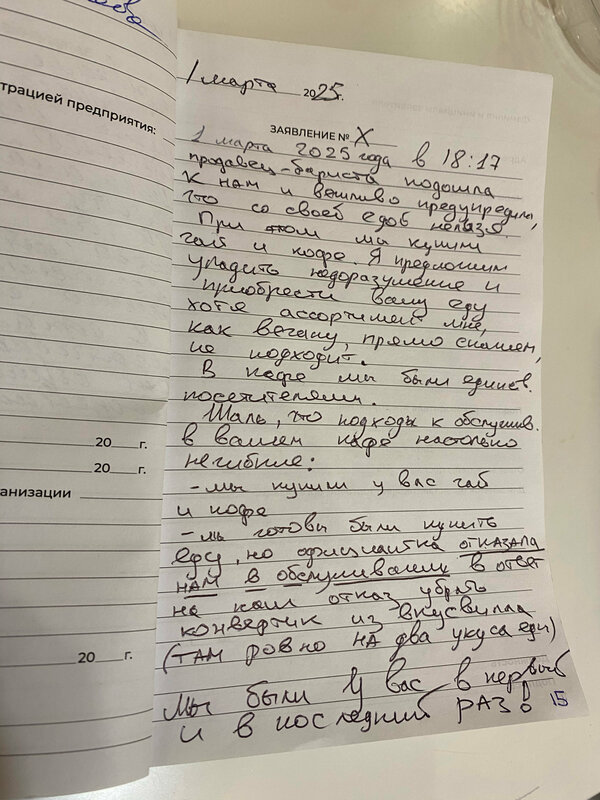 трацией предприятия:
20 г.
20 г.
анизации
20 г.
1 марта 2025г.
ЗАЯВЛЕНИЕ № X
1 марта 2025 года в 18:17
продавец-бариста подошла
к нам и вежливо предупредила,
что со своей едой нельзя.
При этом мы купили
чай и кофе. Я предложили
уладить недоразумение и
приобрести вашу еду
хотя ассортимент мне,
как вегану, прямо скажем,
не подходит.
В кафе мы были единств.
посетителями.
Жаль, что подходы к обслужив.
в вашем кафе настолько
негибкие:
- мы купили у вас чай
и кофе
- мы готовы были купить
еду, но официантка отказала
нам в обслуживании в ответ
на наш отказ убрать
конвертик из вкусвилла
(там ровно на два укуса еды)
Мы были у вас в первый
и в последний РАЗ!
15